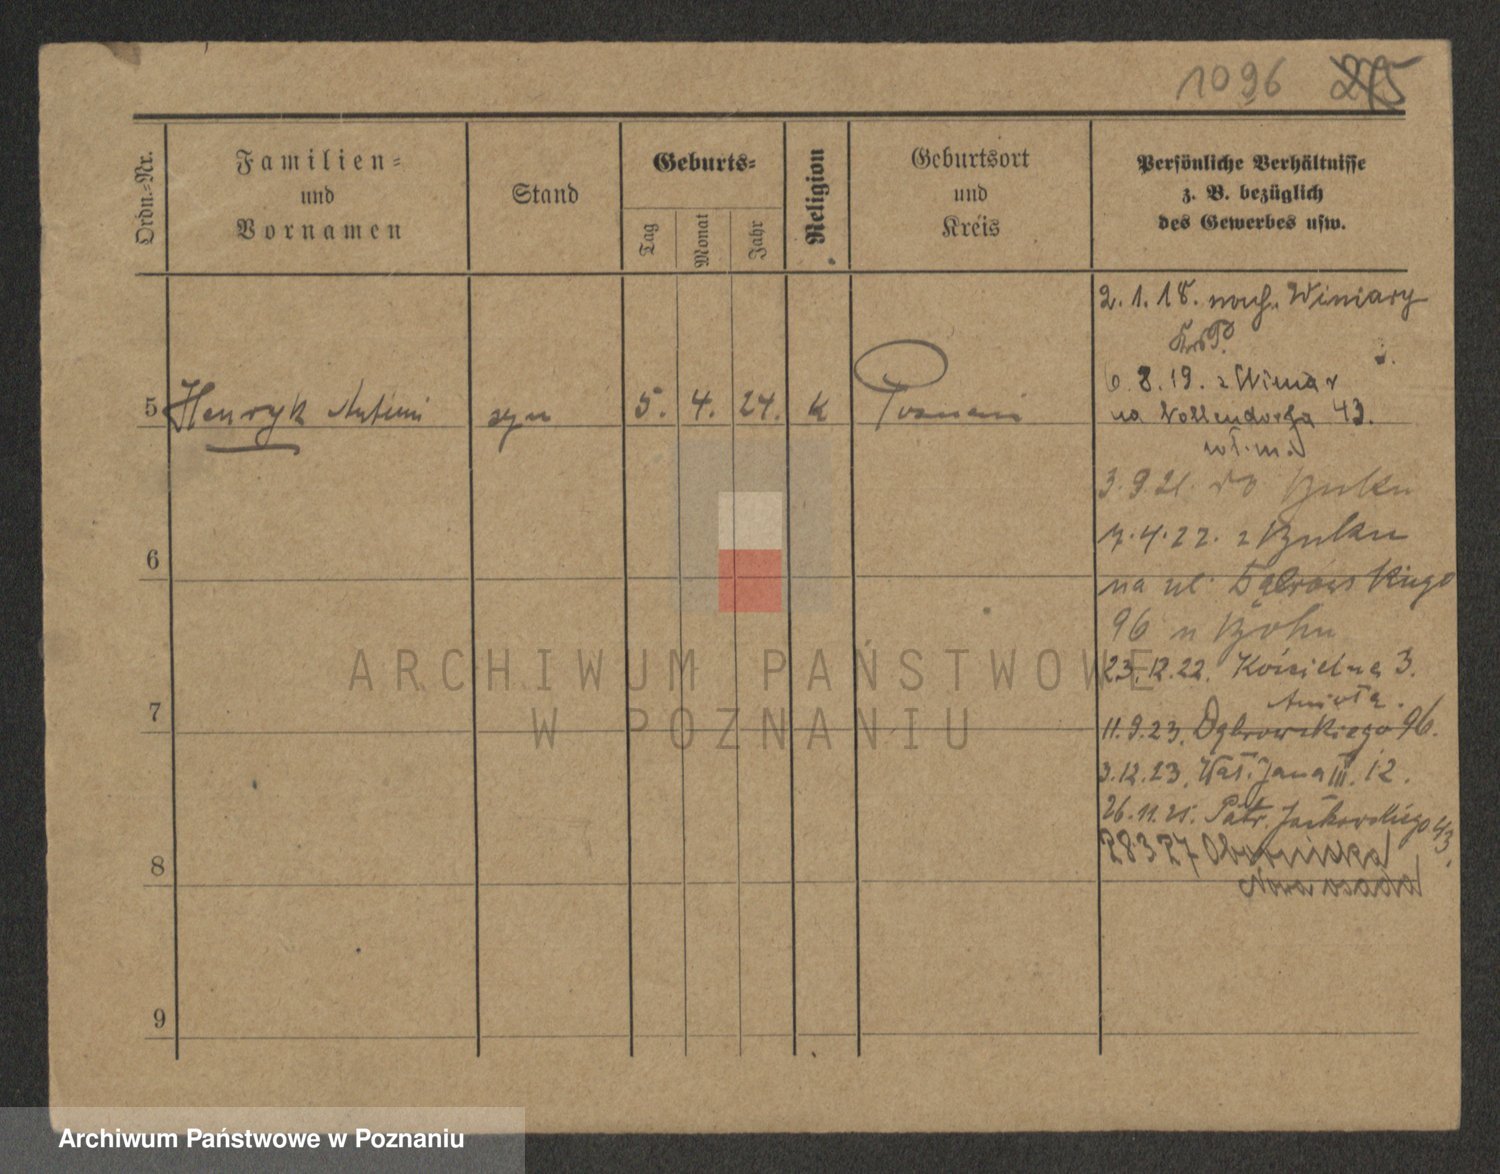 1096 275
Ordn.-Nr.
Familien-
und
Vornamen
Stand
Geburts-
Tag
Monat
Jahr
Religion
Geburtsort
und
Kreis
Persönliche Verhältnisse
z. B. bezüglich
des Gewerbes usw.
5 Henryk Antoni syn 5. 4. 24. k Poznań
6
7
8
9
2.1.18. nach. Winiary
6.8.19. z Winiar
na Wollendorfa 43.
3.9.21. do Buku
7.4.22. z Buku
na ul. Dąbrowskiego
96
23.12.22. Kościelna 3.
Anioła.
11.9.23. Dąbrowskiego 96.
3.12.23. Wał. Jana III. 12.
26.11.25. Patr. Jackowskiego 43.
28 3 27 Obornicka
Nowa osada
ARCHIWUM PAŃSTWOWE
W POZNANIU
Archiwum Państwowe w Poznaniu